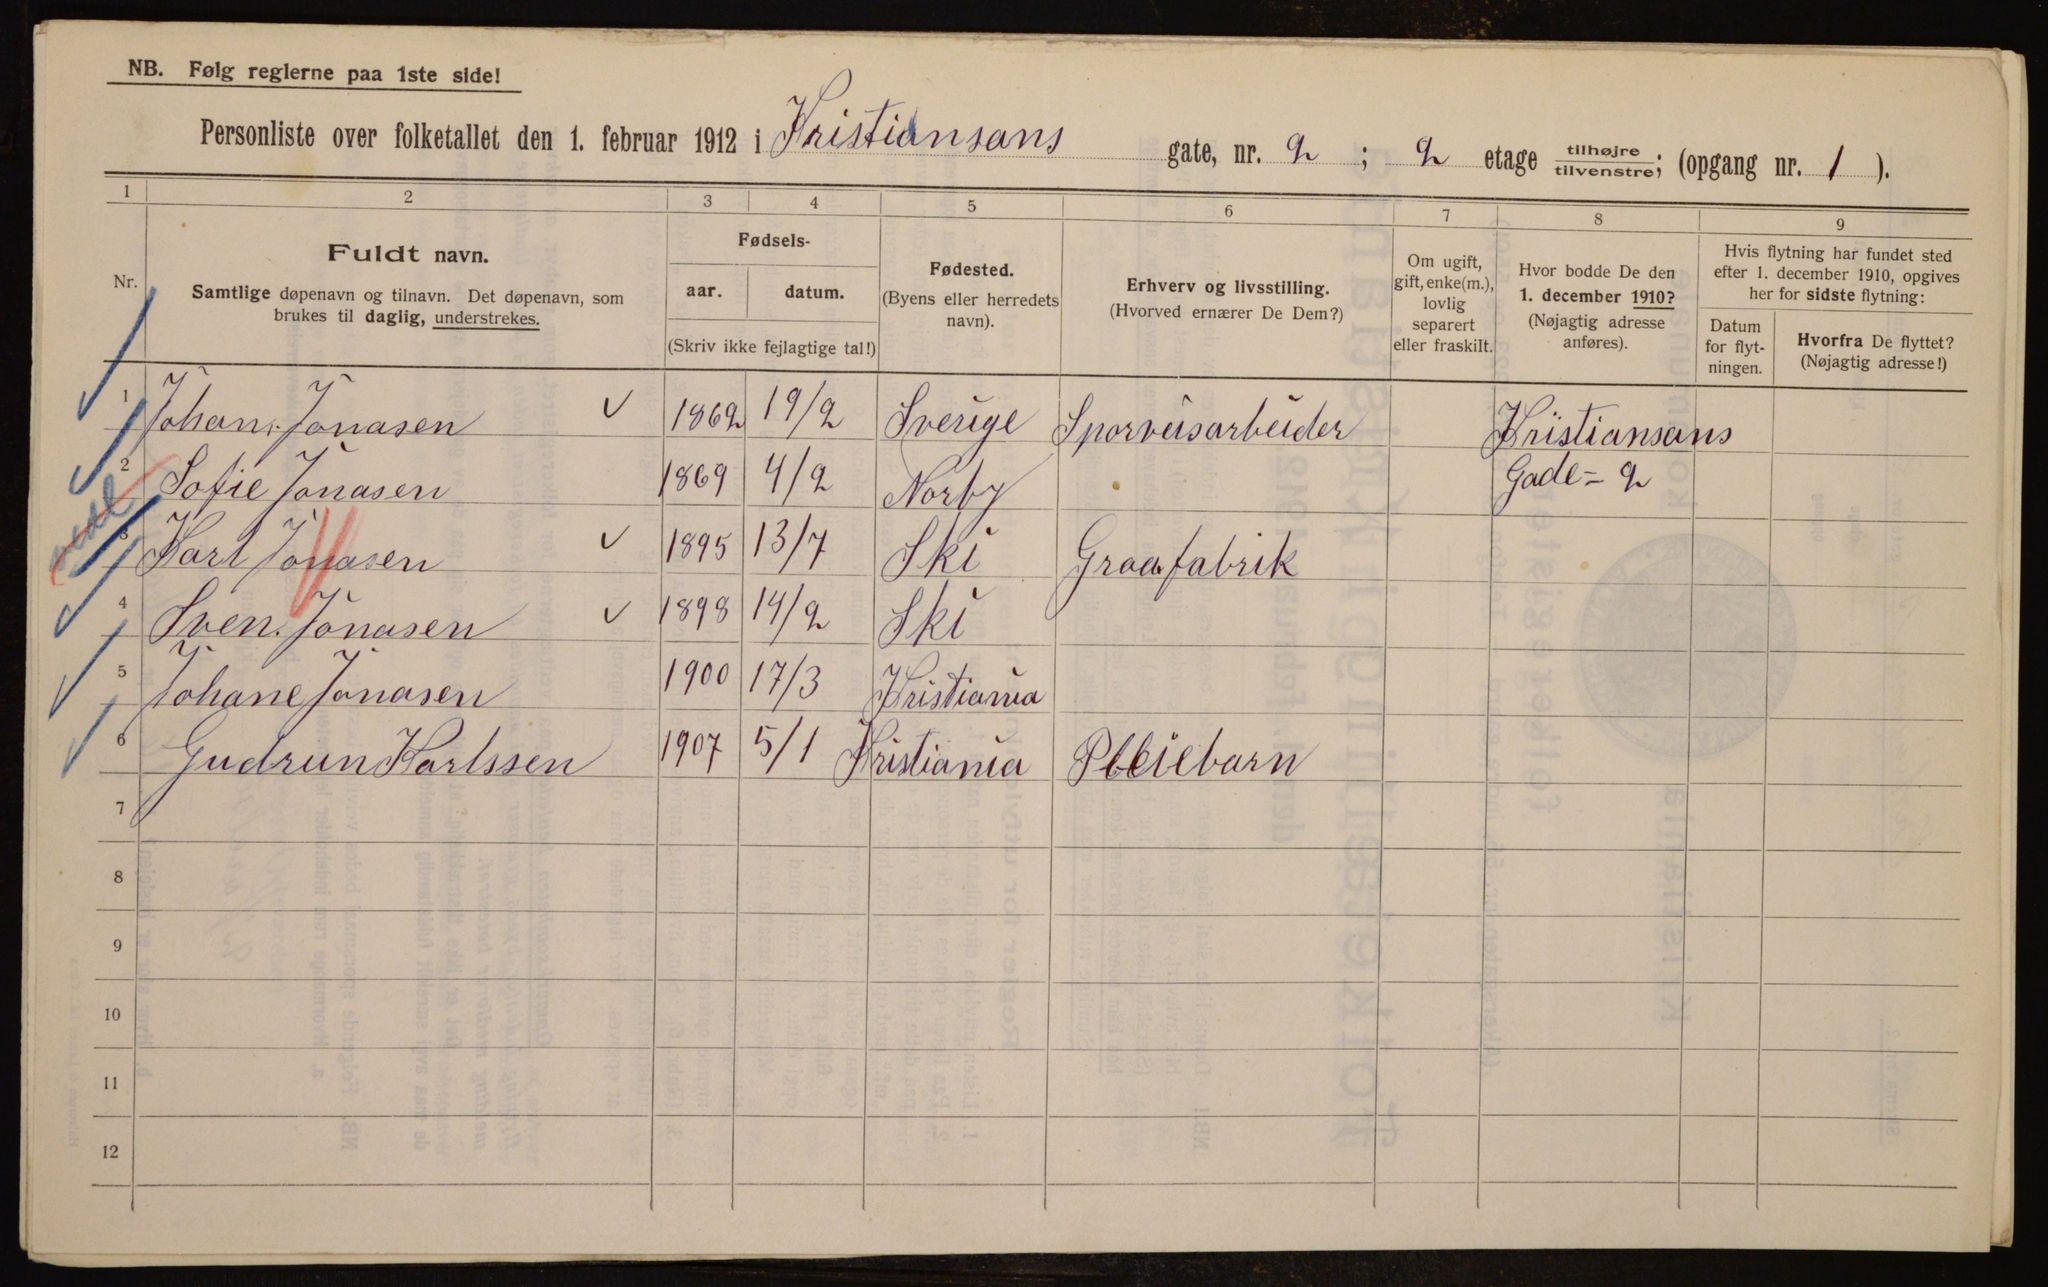 NB. Følg reglerne paa 1ste side!
Personliste over folketallet den 1. februar 1912 i Kristiansans gate, nr. 2 ; 2 etage tilhøjre/tilvenstre; (opgang nr. 1 ).
1 2 3 4 5 6 7 8 9
Nr.
Fuldt navn.
Samtlige døpenavn og tilnavn. Det døpenavn, som
brukes til daglig, understrekes.
Fødsels-
aar. datum.
(Skriv ikke fejlagtige tal!)
Fødested.
(Byens eller herredets
navn).
Erhverv og livsstilling.
(Hvorved ernærer De Dem?)
Om ugift,
gift, enke(m.),
lovlig
separert
eller fraskilt.
Hvor bodde De den
1. december 1910?
(Nøjagtig adresse
anføres).
Hvis flytning har fundet sted
efter 1. december 1910, opgives
her for sidste flytning:
Datum
for flyt-
ningen.
Hvorfra De flyttet?
(Nøjagtig adresse!)
1 Johan. Jonasen 1862 19/2 Sverige Sporveisarbeider Kristiansans
2 Sofie Jonasen 1869 4/2 Norby Gade = 2
3 Karl Jonasen 1895 13/7 Ski Graafabrik
4 Sven. Jonasen 1898 14/2 Ski
5 Johane Jonasen 1900 17/3 Kristiania
6 Gudrun Karlssen 1907 5/1 Kristiania Pleiebarn
7
8
9
10
11
12